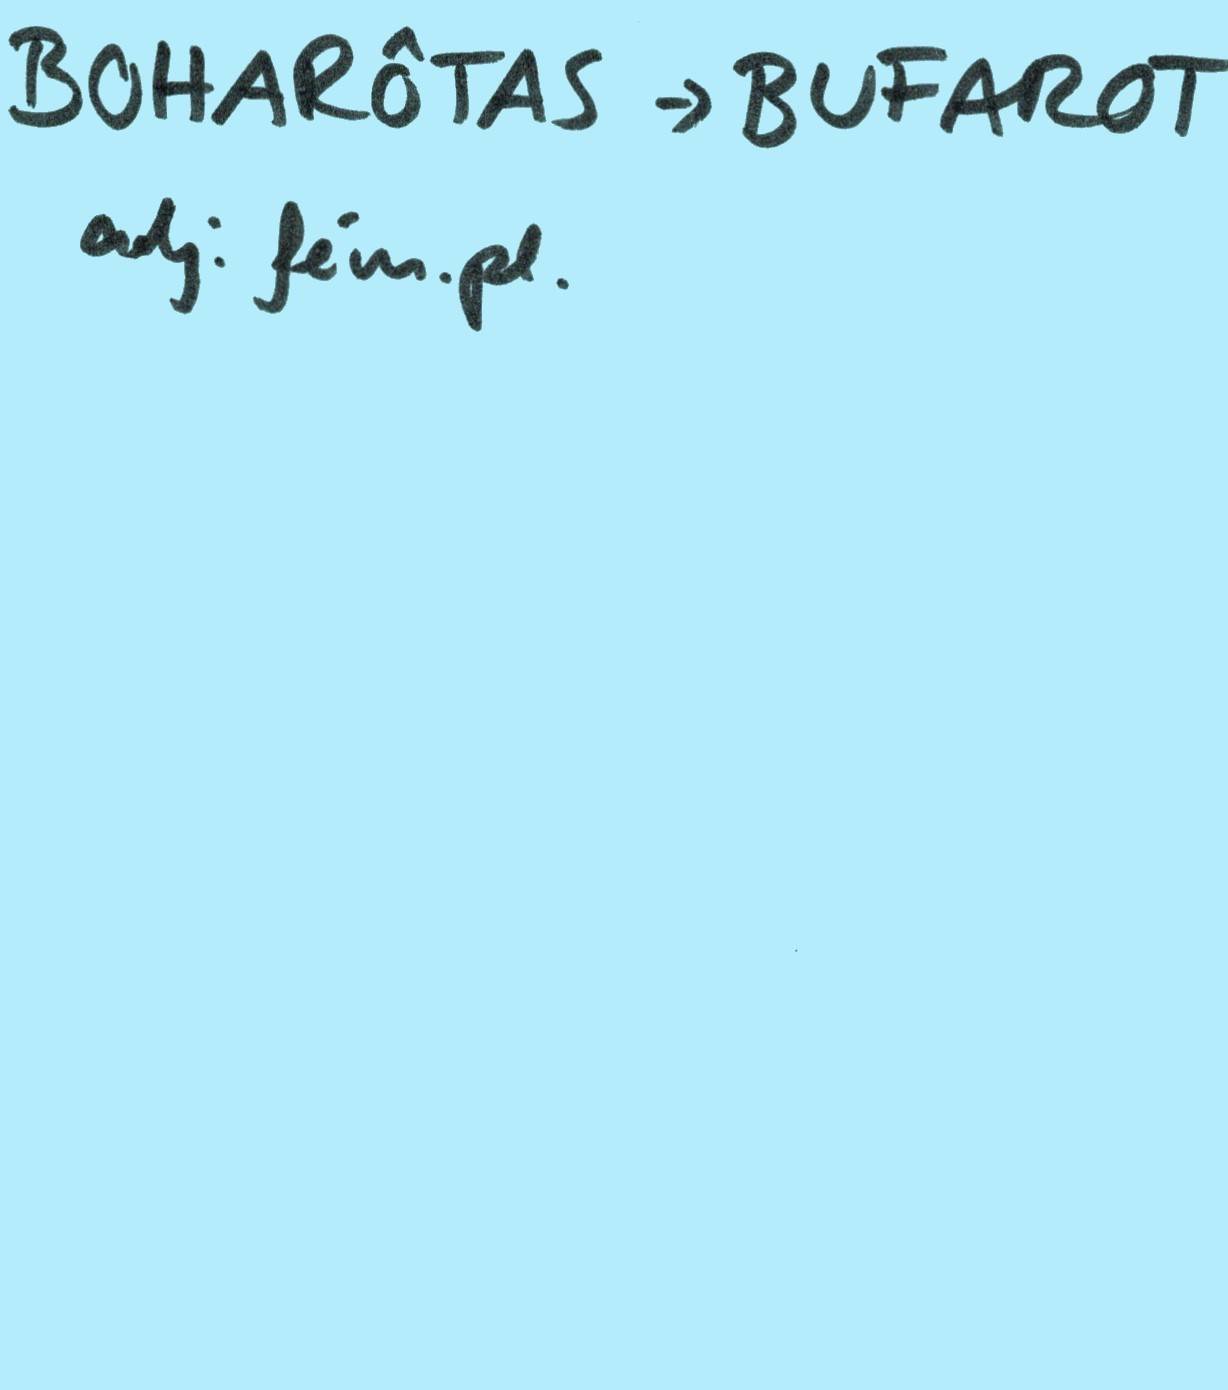 BOHARÔTAS → BUFAROT
adj. fém. pl.